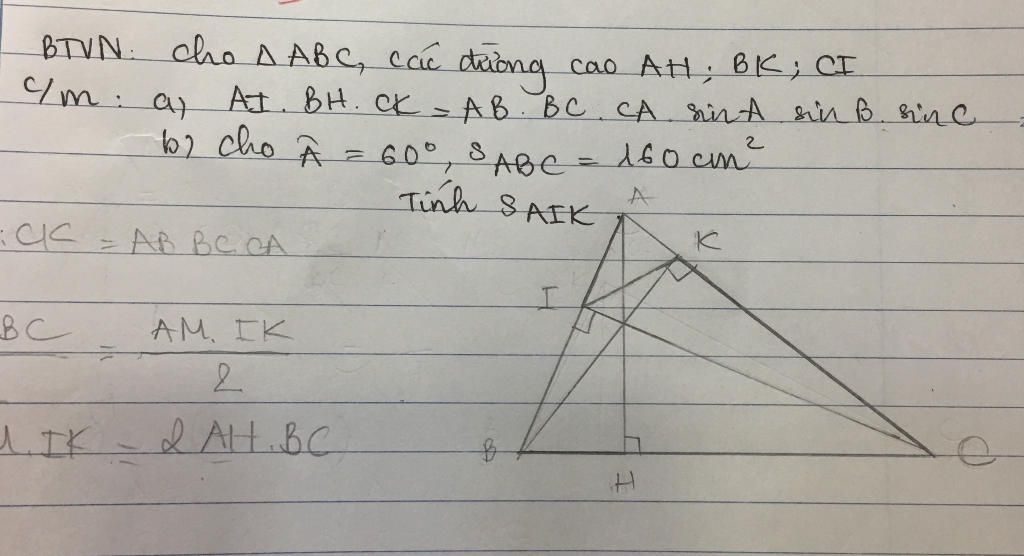 BTVN: Cho Δ ABC, các đường cao AH; BK; CI
c/m: a, AI. BH. CK = AB. BC. CA. sinA sin B. sin C
b, Cho Â = 60°, SABC = 160 cm²
Tính SAIK
A
: CK = AB BC CA
K
I
BC = AM. IK
2
. IK = 2 AH. BC
B
C
H